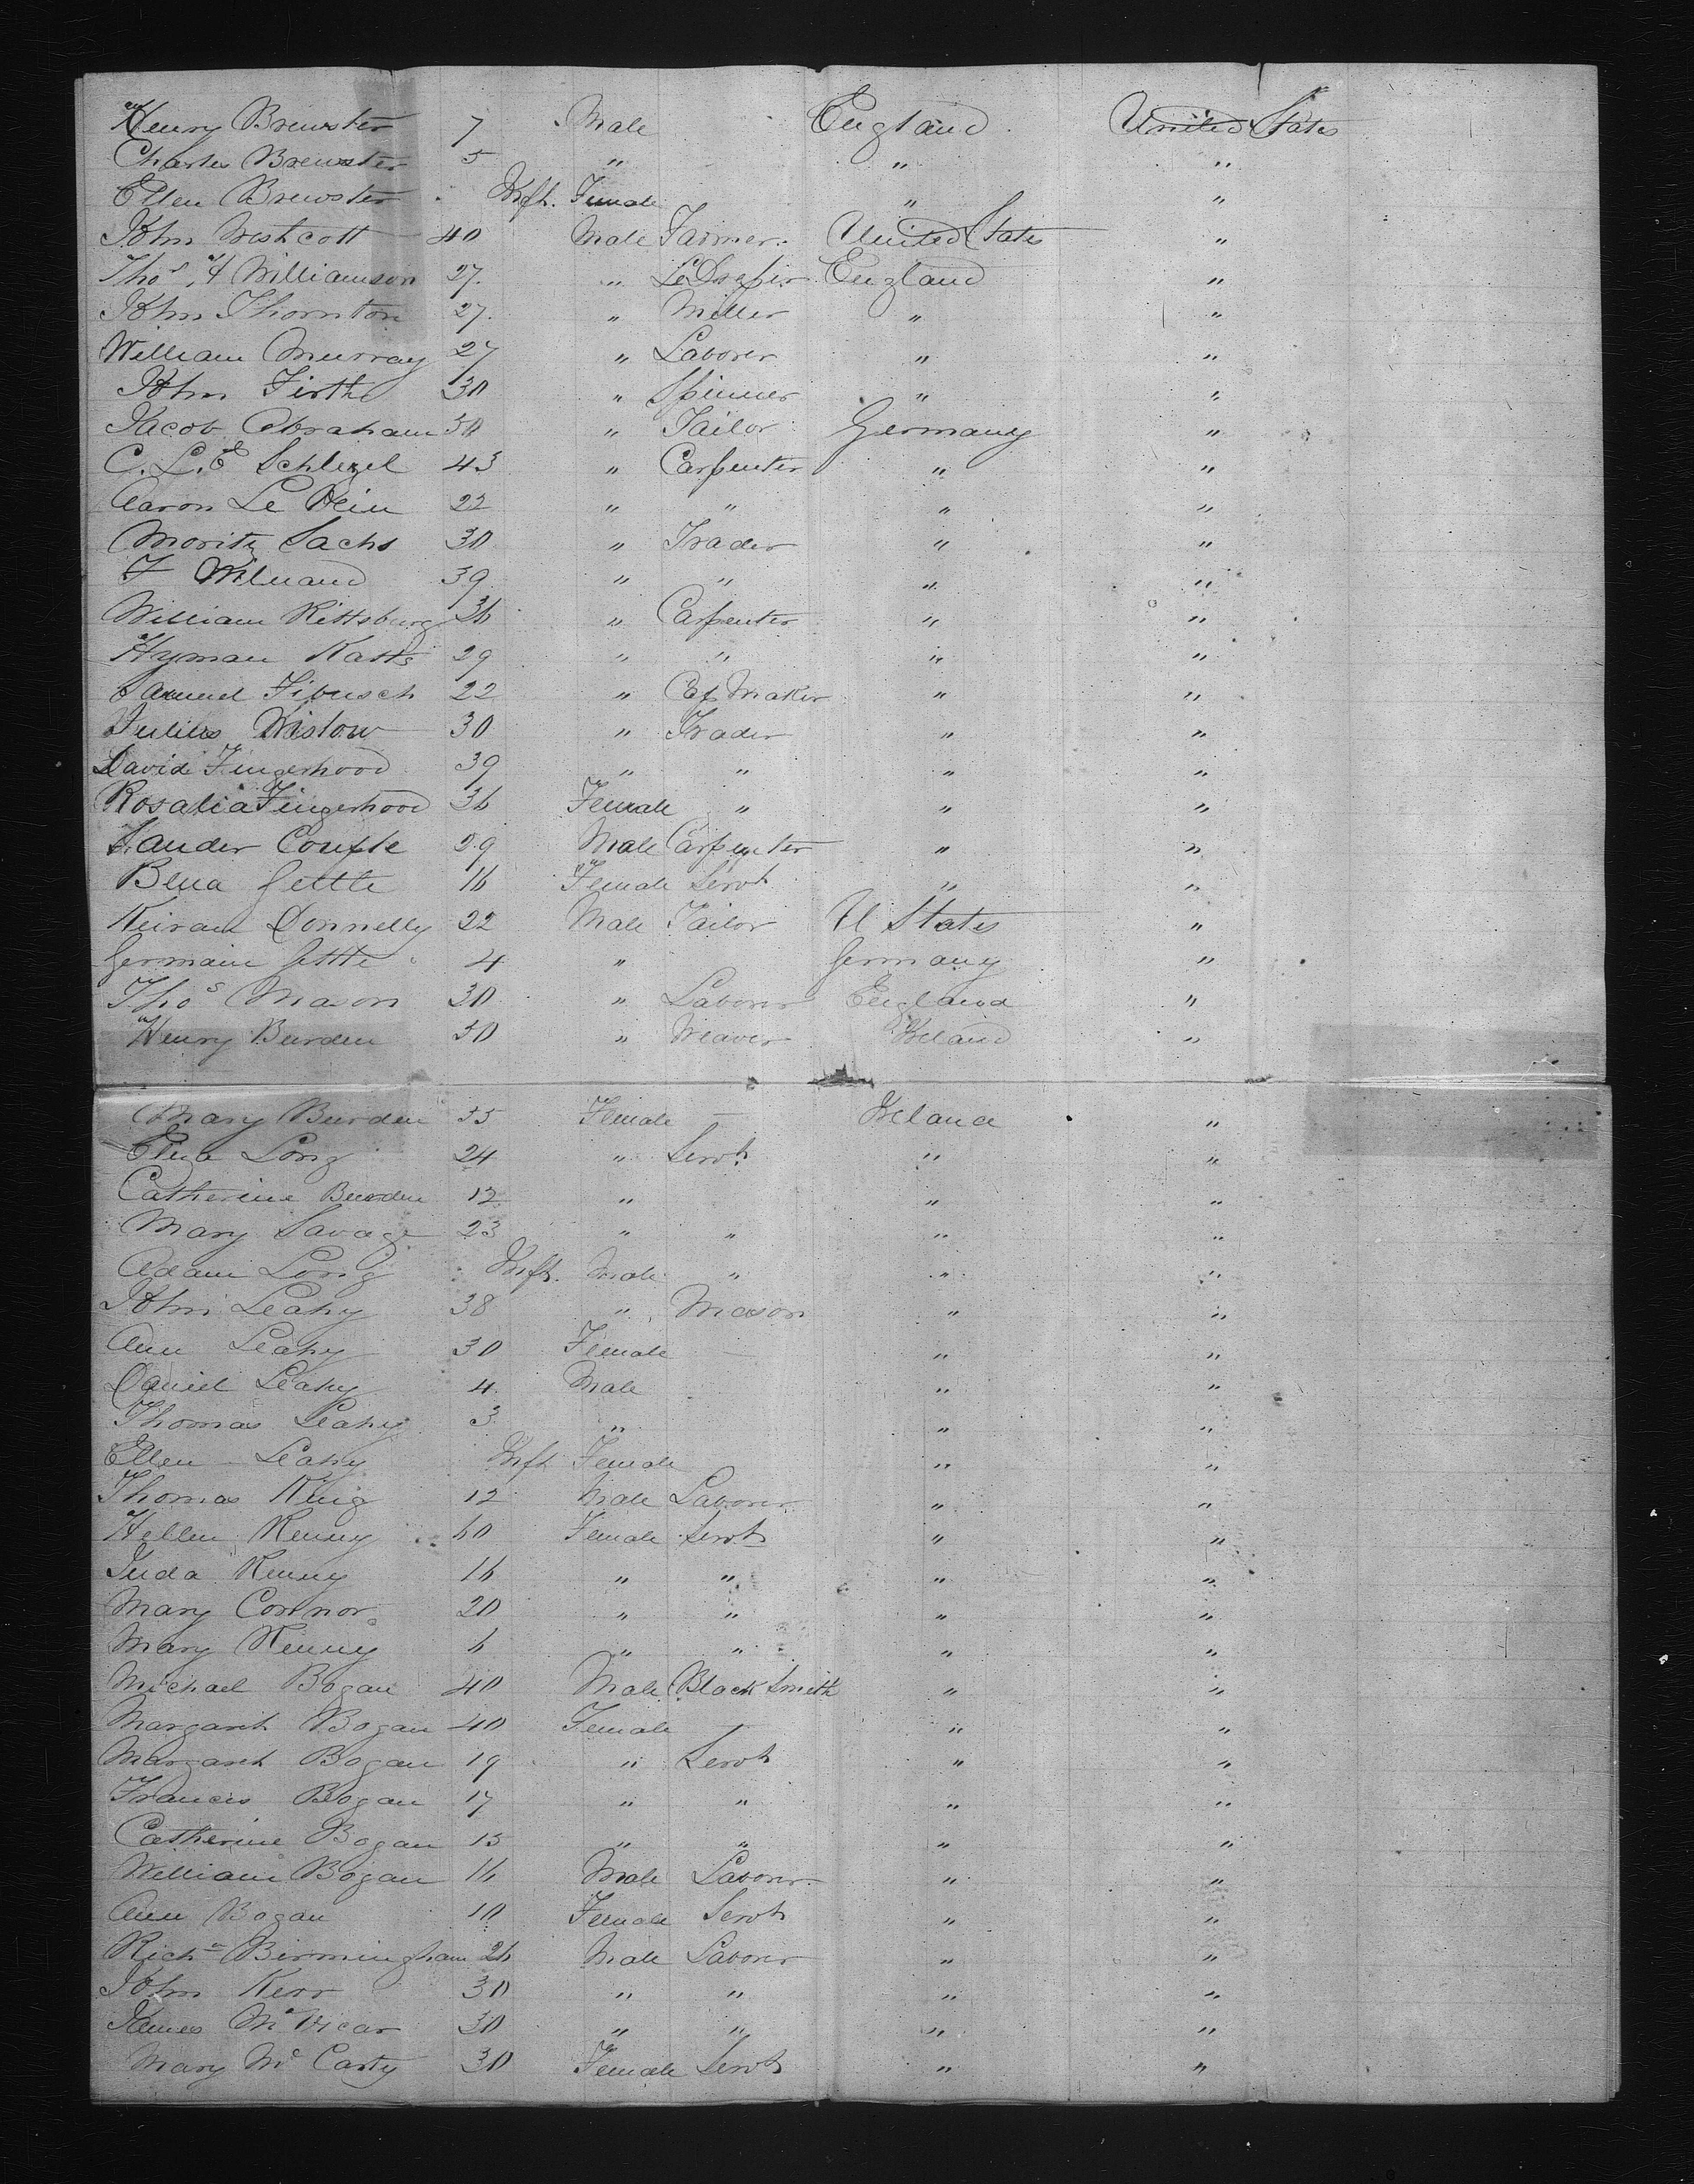 Henry Brewster 7 Male England United States
Charles Brewster 5 " " "
Ellen Brewster Inft. Female " "
John Westcott 40 Male Farmer United States "
Thos. H Williamson 27 " England "
John Thornton 27 " Miller " "
William Murray 27 " Laborer " "
John Firth 30 " Spinner " "
Jacob Abraham 30 " Tailor Germany "
C. L. E Schlegel 43 " Carpenter " "
Aaron Le 22 " " " "
Moritz Sachs 30 " Trader " "
F 39 " " " "
William Rittsburg 36 " Carpenter " "
Hyman Katts 29 " " " "
Samuel Fibusch 22 " Cap Maker " "
Julius Wistow 30 " Trader " "
David Fingerhood 39 " " " "
Rosalia Fingerhood 36 Female " " "
Sander 29 Male Carpenter " "
Bena Gettle 16 Female Servt " "
Keiran Donnelly 22 Male Tailor U States "
Germain Gettle 4 " Germany "
Thos Mason 30 " Laborer England "
Henry Burden 50 " Weaver Ireland "
Mary Burden 35 Female — Ireland "
Eliza Long 24 " Servt. " "
Catherine Burden 12 " " "
Mary Savage 23 " " " "
Adam Long Inft. Male " " "
John Leahy 38 " Mason " "
Ann Leahy 30 Female — " "
Daniel Leahy 4 Male " "
Thomas Leahy 3 " " "
Ellen Leahy Inft Female " "
Thomas King 12 Male Laborer " "
Hellen Kenny 60 Female Servt " "
Juda Kenny 16 " " " "
Mary Connor 20 " " " "
Mary Kenny 6 " " " "
Michael Bogan 40 Male Black Smith " "
Margaret Bogan 40 Female — " "
Margaret Bogan 19 " Servt " "
Francis Bogan 17 " " " "
Catherine Bogan 15 " " " "
William Bogan 16 Male Laborer " "
Ann Bogan 10 Female Servt " "
Richd Birmingham 26 Male Laborer " "
John Kerr 30 " " " "
James Mc Vicar 30 " " " "
Mary Mc Carty 30 Female Servt " "